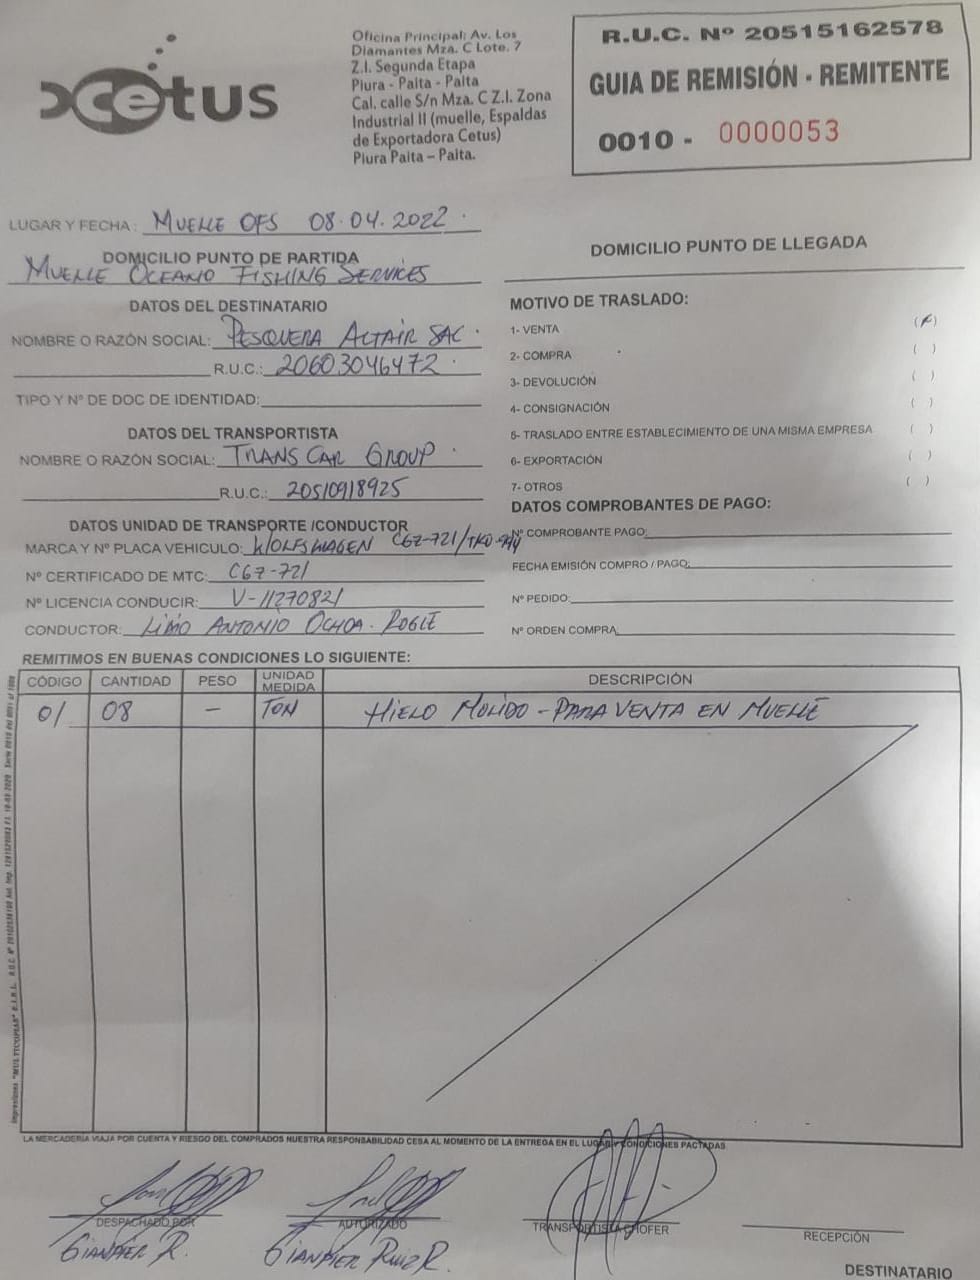 cetus
Oficina Principal: Av. Los
Diamantes Mza. C Lote. 7
Z.I. Segunda Etapa
Piura - Paita - Paita
Cal. calle S/n Mza. C Z.I. Zona
Industrial II (muelle, Espaldas
de Exportadora Cetus)
Piura Paita – Paita.
R.U.C. Nº 20515162578
GUIA DE REMISIÓN - REMITENTE
0010 - 0000053
LUGAR Y FECHA: MUELLE OFS 08.04.2022.
DOMICILIO PUNTO DE PARTIDA
MUELLE OCEANO FISHING SERVICES
DATOS DEL DESTINATARIO
NOMBRE O RAZÓN SOCIAL: PESQUERA ALTAIR SAC.
R.U.C.: 20603046472.
TIPO Y Nº DE DOC DE IDENTIDAD:
DATOS DEL TRANSPORTISTA
NOMBRE O RAZÓN SOCIAL: TRANS CAR GROUP.
R.U.C.: 20510918925
DATOS UNIDAD DE TRANSPORTE /CONDUCTOR
MARCA Y Nº PLACA VEHICULO: WOLFSWAGEN C6Z-721/
Nº CERTIFICADO DE MTC: C6Z-721
Nº LICENCIA CONDUCIR: V-11270821
CONDUCTOR: ANTONIO OCHOA
DOMICILIO PUNTO DE LLEGADA
MOTIVO DE TRASLADO:
1- VENTA ( )
2- COMPRA ( )
3- DEVOLUCIÓN ( )
4- CONSIGNACIÓN ( )
5- TRASLADO ENTRE ESTABLECIMIENTO DE UNA MISMA EMPRESA ( )
6- EXPORTACIÓN ( )
7- OTROS ( )
DATOS COMPROBANTES DE PAGO:
Nº COMPROBANTE PAGO:
FECHA EMISIÓN COMPRO / PAGO:
Nº PEDIDO:
Nº ORDEN COMPRA
REMITIMOS EN BUENAS CONDICIONES LO SIGUIENTE:
CÓDIGO CANTIDAD PESO UNIDAD MEDIDA DESCRIPCIÓN
01 08 — TON HIELO MOLIDO - PARA VENTA EN MUELLE
LA MERCADERÍA VIAJA POR CUENTA Y RIESGO DEL COMPRADOS NUESTRA RESPONSABILIDAD CESA AL MOMENTO DE LA ENTREGA EN EL LUGAR Y CONDICIONES PACTADAS
DESPACHADO POR
GIANPIER R.
AUTORIZADO
GIANPIER RUIZ R.
TRANSPORTISTA CHOFER
RECEPCIÓN
DESTINATARIO